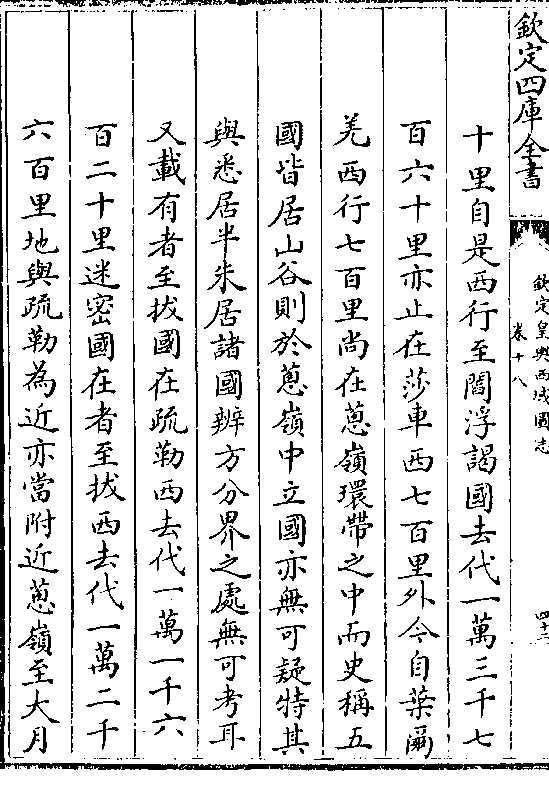 欽定四庫全書
欽定皇輿西域圖志
卷十八
四十二
十里自是西行至閻浮謁國去代一萬三千七
百六十里亦止在莎車西七百里外今自葉爾
羌西行七百里尚在蔥嶺環帶之中而史稱五
國皆居山谷則於蔥嶺中立國亦無可疑特其
與悉居半朱居諸國辨方分界之處無可考耳
又載有者至拔國在疏勒西去代一萬一千六
百二十里迷密國在者至拔西去代一萬二千
六百里地與疏勒為近亦當附近蔥嶺至大月